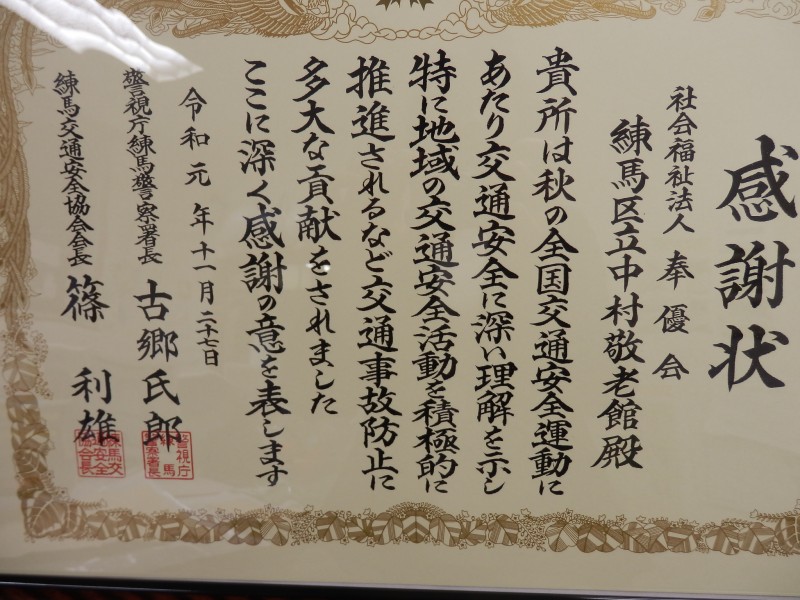 感謝状
社会福祉法人 奉優会
練馬区立中村敬老館殿
貴所は秋の全国交通安全運動に
あたり交通安全に深い理解を示し
特に地域の交通安全活動を積極的に
推進されるなど交通事故防止に
多大な貢献をされました
ここに深く感謝の意を表します
令和元年十一月二十七日
警視庁練馬警察署長 古郷氏郎
警視庁練馬警察署長
練馬交通安全協会会長 篠利雄
練馬交通安全協会会長